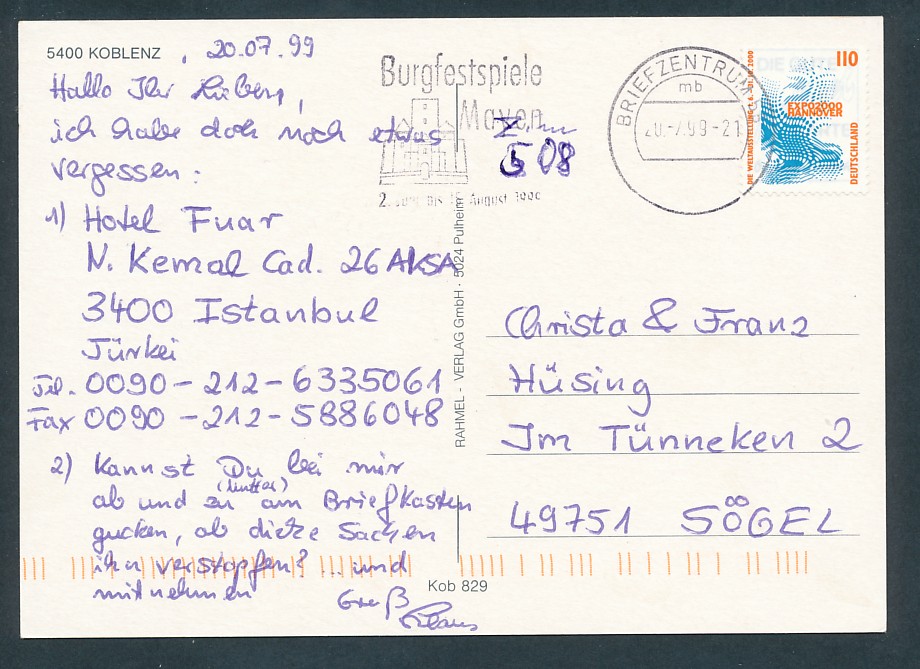 5400 KOBLENZ , 20.07.99
Hallo Ihr Lieben,
ich habe doch noch etwas
vergessen:
1) Hotel Fuar
N. Kemal Cad. 26 AKSA
3400 Istanbul
Türkei
Tel. 0090-212-6335061
Fax 0090-212-5886048
2) Kannst Du bei mir
(Mutter)
ab und zu am Briefkasten
gucken, ob dieze Sachen
ihn verstopfen? ... und
mitnehmen
Gruß
Klaus
Burgfestspiele
Mayen
bis August
Zi.
508
BRIEFZENTRUM
mb
20.-7.99-21
110
EXPO2000
HANNOVER
DIE WELTAUSSTELLUNG
DEUTSCHLAND
RAHMEL - VERLAG GmbH · 5024 Pulheim
Christa & Franz
Hüsing
Im Tünneken 2
49751 SÖGEL
Kob 829